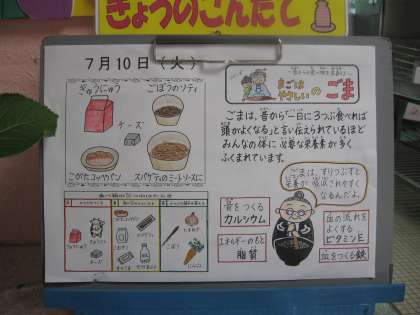 きょうのこんだて
7月10日（火）
ぎゅうにゅう
ごぼうのソティ
チーズ
こがたコッペパン
スパゲティのミートソースに
まごは
やさしいの ごま
ごまは、昔から「一日に3つぶ食べれば
頭がよくなる」と言い伝えられているほど
みんなの体に 必要な栄養素が多く
ふくまれています。
ごまは、すりつぶすと
栄養が 吸収されやすく
なるんだよ。
骨をつくる
カルシウム
エネルギーのもと
脂質
血の流れを
よくする
ビタミンE
血をつくる鉄
チーズ
ごぼう
にんじん